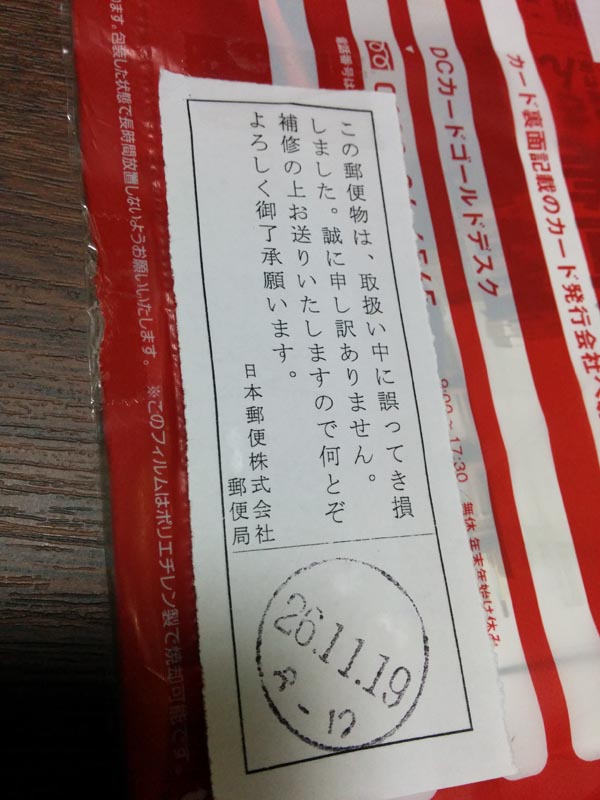 この郵便物は、取扱い中に誤ってき損
しました。誠に申し訳ありません。
補修の上お送りいたしますので何とぞ
よろしく御了承願います。
日本郵便株式会社
郵便局
26.11.19
8-12
カード裏面記載のカード発行会社
DCカードゴールドデスク
9:00~17:30/無休 年末年始は休み
電話番号は
ます。包装した状態で長時間放置しないようお願いいたします。
※このフィルムはポリエチレン製で焼却可能です。